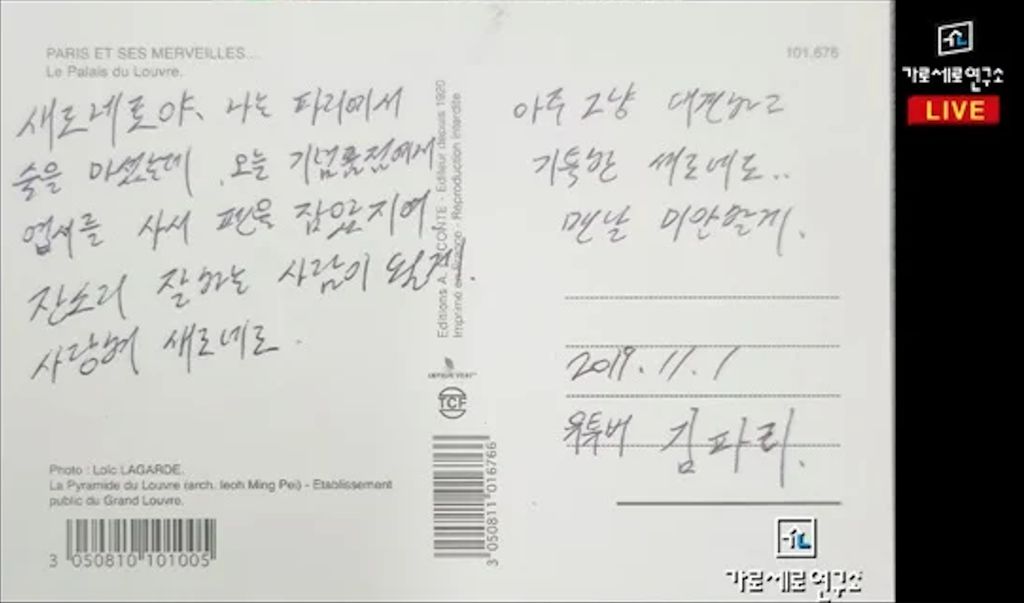 PARIS ET SES MERVEILLES...
Le Palais du Louvre.
새로네로야, 나는 파리에서
술을 마셨는데, 오늘 기념품점에서
엽서를 사서 펜을 잡았지여.
잔소리 잘하는 사람이 될게.
사랑해 새로네로.
Photo : Loïc LAGARDE.
La Pyramide du Louvre (arch. Ieoh Ming Pei) - Etablissement
public du Grand Louvre.
3 050810 101005
Editions A. LECONTE - Editeur depuis 1920
Imprimé en France - Reproduction interdite
TCF
3 050811 016766
101.676
아주 그냥 대견하고
기특한 새로네로..
맨날 미안할게.
2019.11.1
유튜버 김파리.
가로세로연구소
가로세로연구소
LIVE